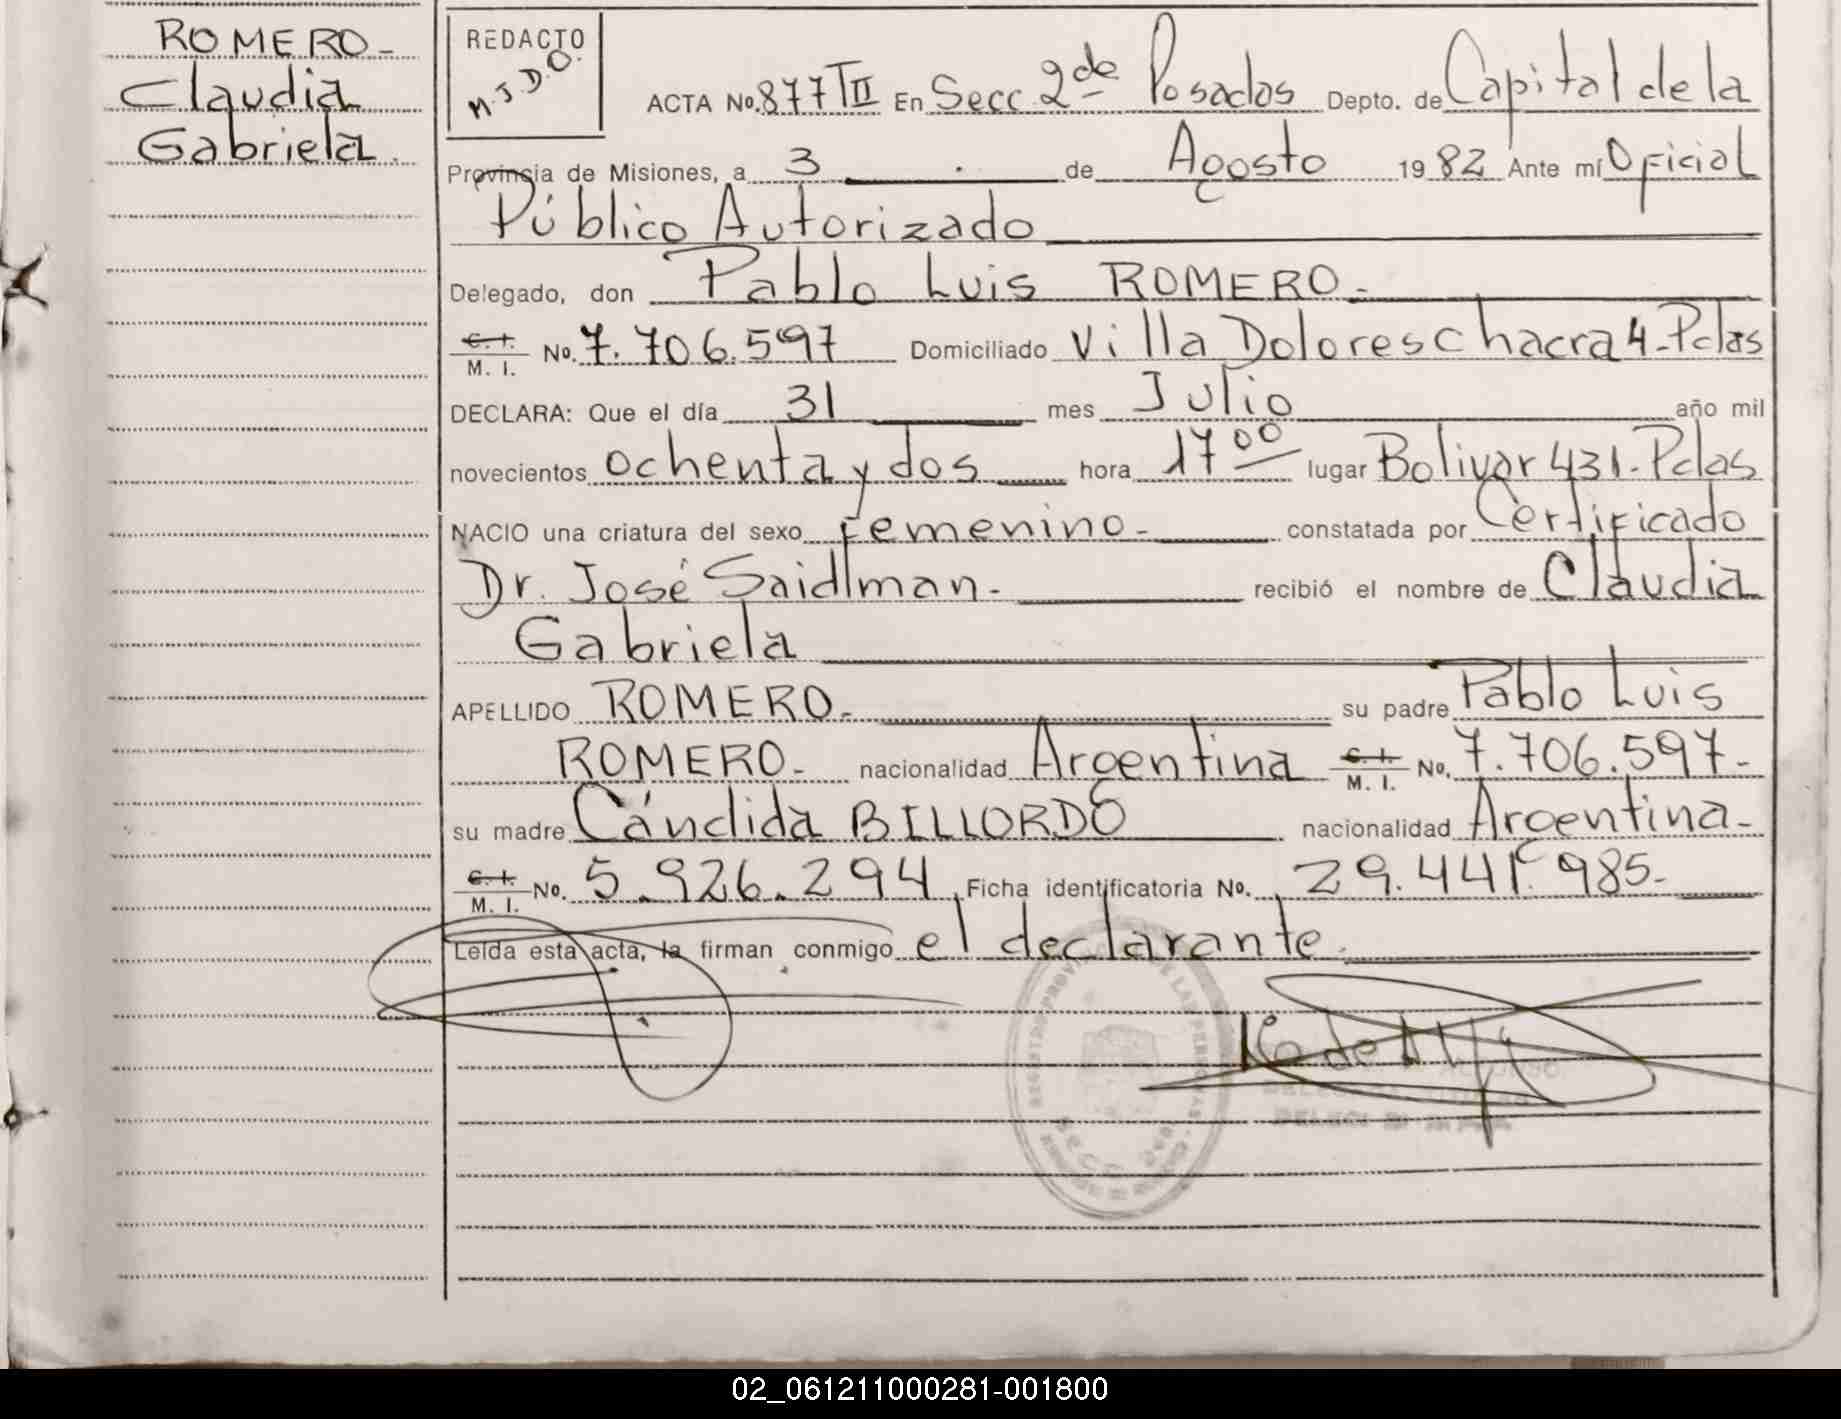 ROMERO-
Claudia
Gabriela.
REDACTO
M.J.D.O.
ACTA No. 877 TII En Secc 2de Posadas Depto. de Capital de la
Provincia de Misiones, a 3 de Agosto 1982 Ante mí Oficial
Público Autorizado
Delegado, don Pablo Luis ROMERO.-
C. I. M. I. No. 7.706.597 Domiciliado Villa Dolores chacra 4-Pdas
DECLARA: Que el día 31 mes Julio año mil
novecientos ochenta y dos hora 17 00 lugar Bolivar 431-Pdas
NACIO una criatura del sexo femenino- constatada por Certificado
Dr. José Saidlman- recibió el nombre de Claudia
Gabriela
APELLIDO ROMERO- su padre Pablo Luis
ROMERO- nacionalidad Argentina C. I. M. I. No. 7.706.597-
su madre Cándida BILLORDÓ nacionalidad Argentina-
C. I. M. I. No. 5.926.294 Ficha identificatoria No. 29.441.985-
Leída esta acta, la firman conmigo el declarante.
02_061211000281-001800